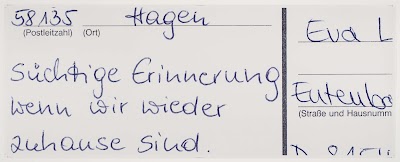 58135 Hagen
(Postleitzahl) (Ort)
Süchtige Erinnerung
wenn wir wieder
zuhause sind.
Eva L
(Straße und Hausnumm